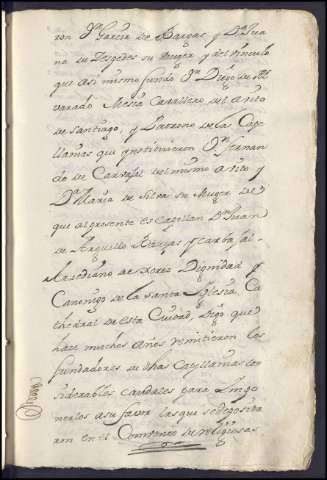 ron Dn Garcia de Bargas y Da Jua
na de Zespedes su Muger y del vinculo
que asi mismo fundo Dn Diego de Al
varado Mesia Cavallero del Avito
de Santiago, y Patrono de las Cape
llanias que ynstituieron Dn Fernan
do de Carvajal del mismo Avito y
Da Maria de Silva su Muger de
que al presente es Capellan Dn Juan
de Arguello Vargas y Carbajal
Arzediano de Xerez Dignidad y
Canonigo de la Santa Yglesia Ca
thedral de esta Ciudad, Digo que
haze muchos años remitieron los
fundadores de dhas Capellanias con
siderables caudales para Ympo
nerlos a su favor las que se deposita
ron en el Convento de religiosas